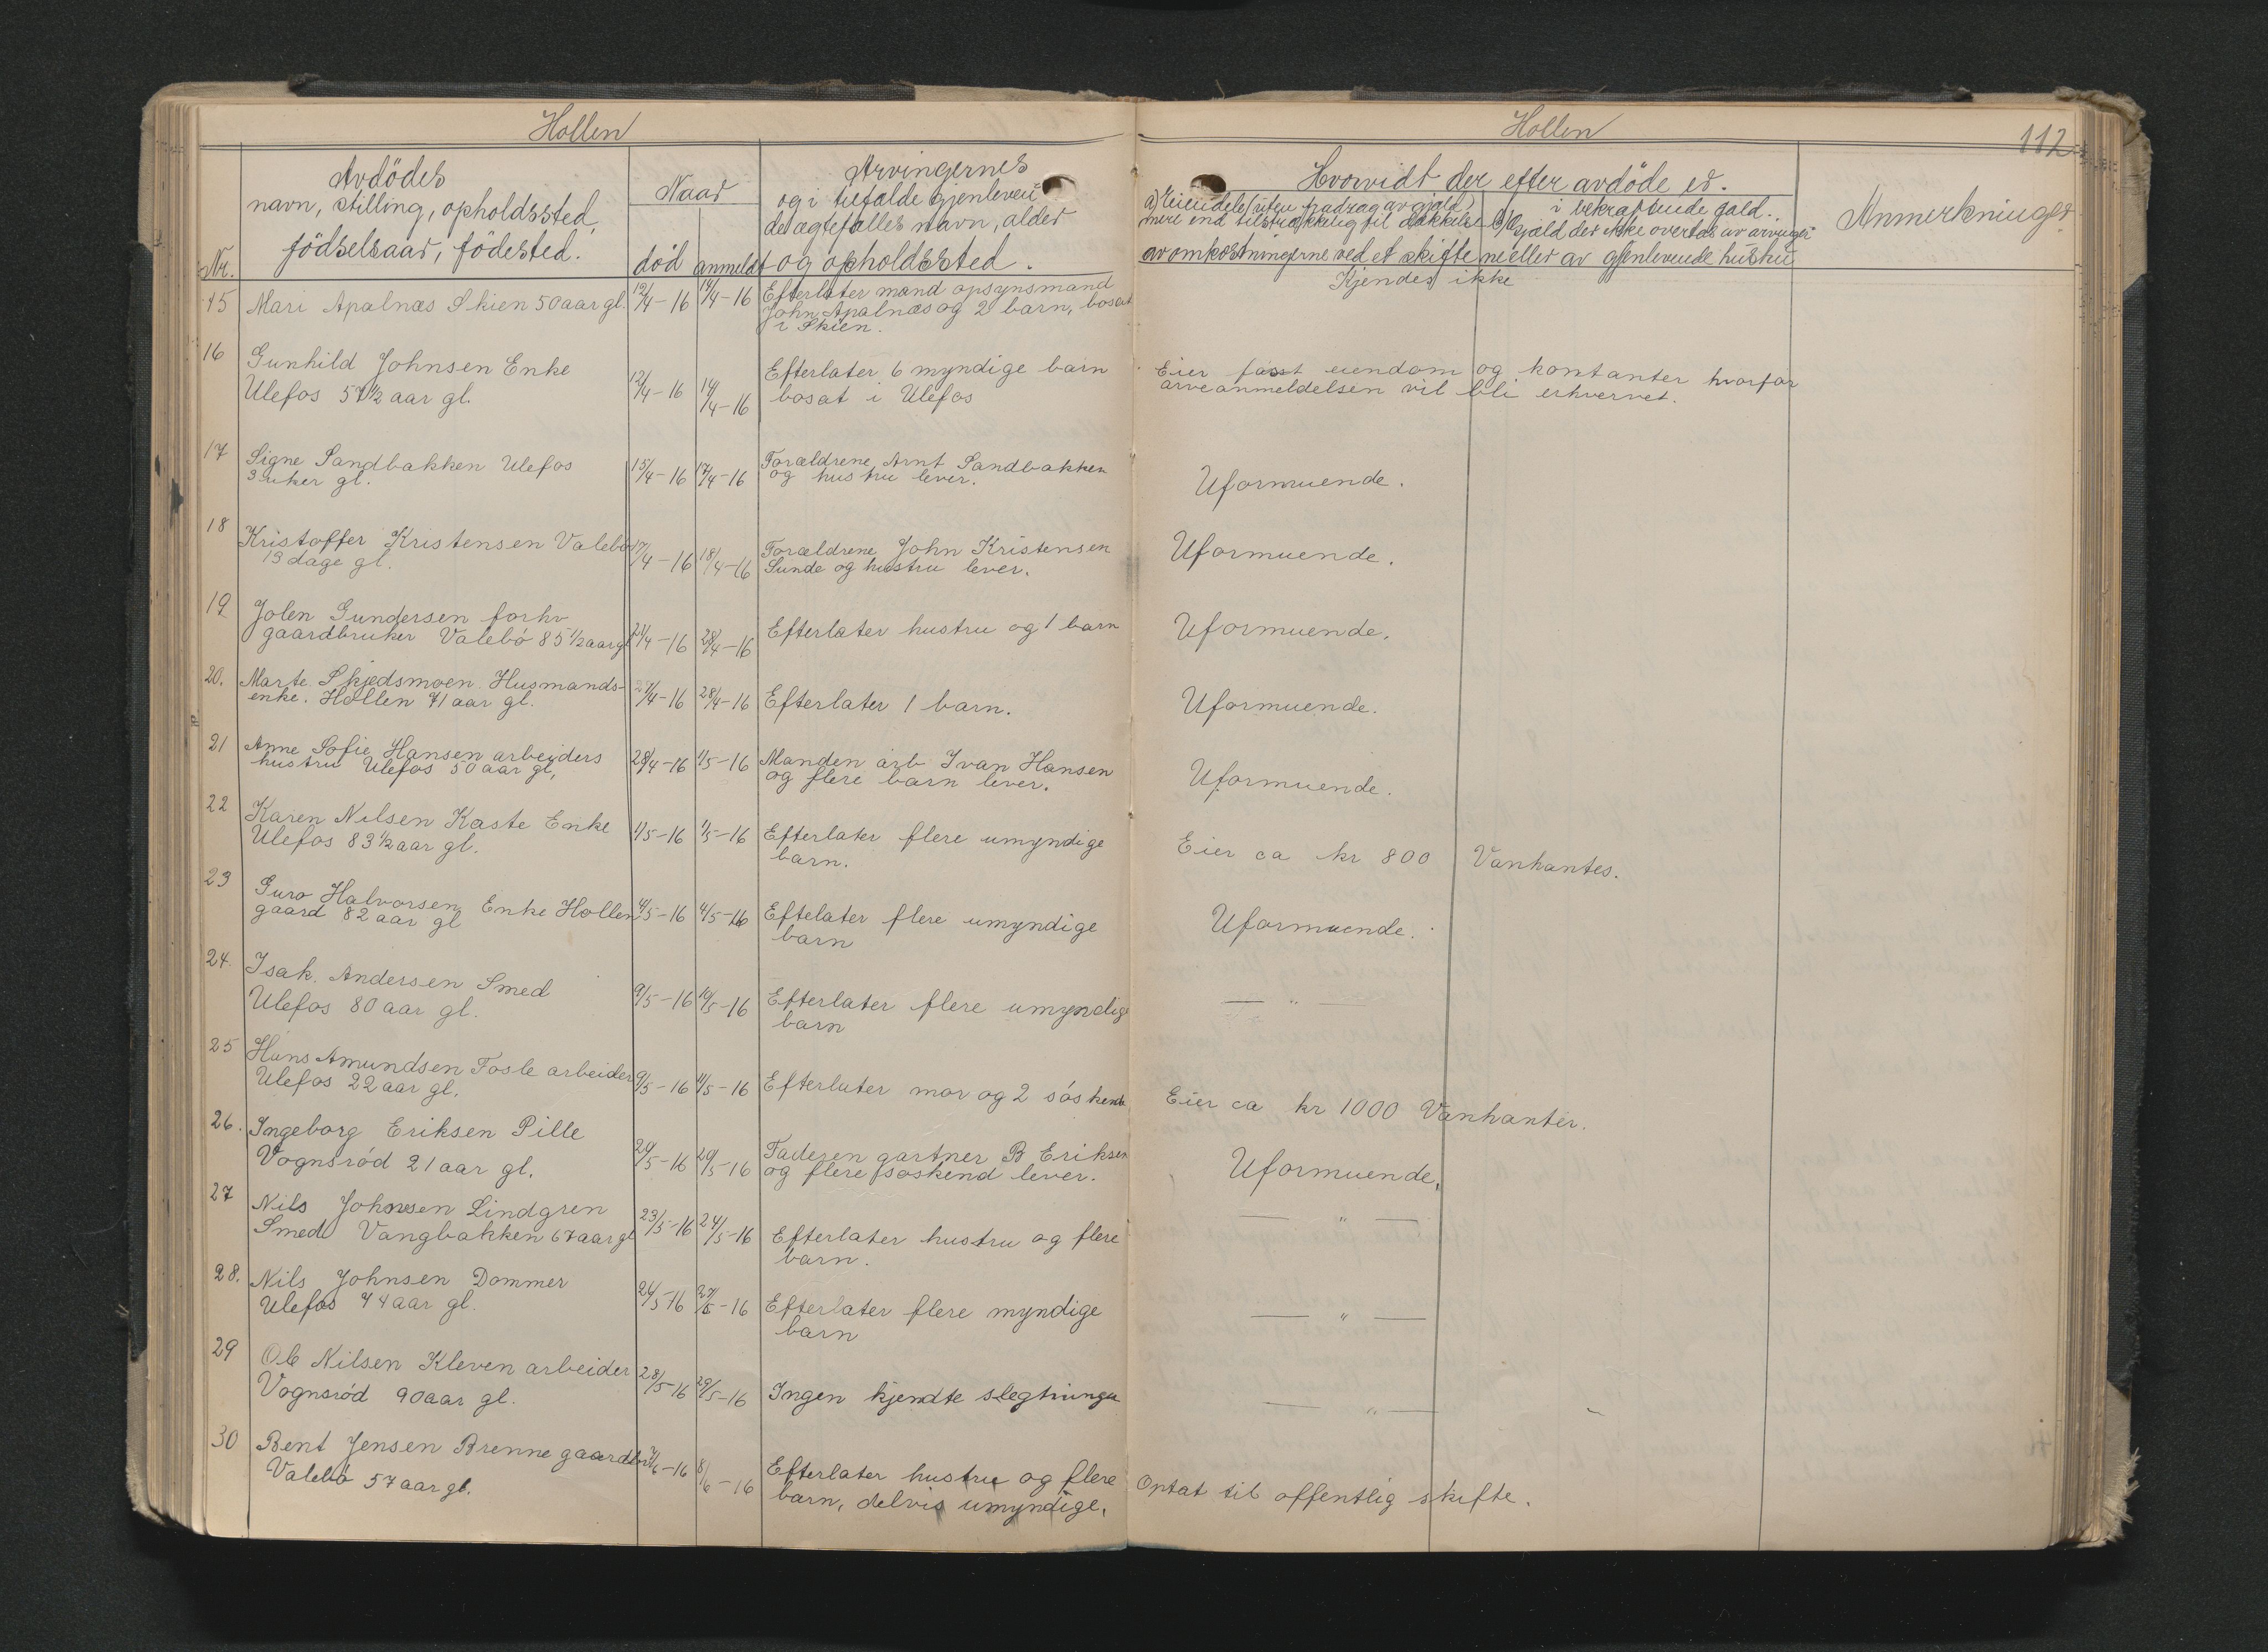 Hollen
Avdödes
navn, stilling, opholdssted,
födselsaar, födested.
Nr.
Naar
död anmeldt
Arvingernes
og i tilfælde gjenleven
de ægtefælles navn, alder
og opholdssted.
15 Mari Apalnæs Skien 50 aar gl. 12/4-16 14/4-16 Efterlater mand opsynsmand
John Apalnæs og 2 barn, bosat
i Skien.
16 Gunhild Johnsen Enke
Ulefos 57 1/2 aar gl. 12/4-16 14/4-16 Efterlater 6 myndige barn
bosat i Ulefos
17 Signe Sandbakken Ulefos
3 uker gl. 15/4-16 17/4-16 Forældrene Arnt Sandbakken
og hustru lever.
18 Kristoffer Kristensen Valebö
13 dage gl. 17/4-16 18/4-16 Forældrene John Kristensen
Sunde og hustru lever.
19 Jolen Gundersen forhv
gaardbruker Valebö 85 1/2 aar gl 21/4-16 28/4-16 Efterlater hustru og 1 barn
20. Marte Skjedsmoen Husmands-
enke. Hollen 71 aar gl. 27/4-16 28/4-16 Efterlater 1 barn.
21 Anne Sofie Hansen arbeiders
hustru Ulefos 50 aar gl, 28/4-16 1/5-16 Manden arb Ivan Hansen
og flere barn lever.
22 Karen Nilsen Kaste Enke
Ulefos 83 1/2 aar gl. 1/5-16 1/5-16 Efterlater flere umyndige
barn.
23 Guro Halvorsen Enke Hollen
gaard 82 aar gl 4/5-16 4/5-16 Eftelater flere umyndige
barn
24. Isak. Andersen Smed
Ulefos 80 aar gl. 9/5-16 10/5-16 Efterlater flere umyndige
barn
25 Hans Amundsen Fosle arbeider
Ulefos 22 aar gl. 9/5-16 11/5-16 Efterlater mor og 2 söskende
26. Ingeborg Eriksen Pille
Vognsröd 21 aar gl. 20/5-16 20/5-16 Faderen gartner B Eriksen
og flere soskend lever.
27 Nils Johnsen Lindgren
Smed Vangbakken 67 aar gl 23/5-16 24/5-16 Efterlater hustru og flere
barn.
28. Nils Johnsen Dommer
Ulefos 74 aar gl. 24/5-16 27/5-16 Efterlater flere myndige
barn
29 Ole Nilsen Kleven arbeider
Vognsröd 90 aar gl. 28/5-16 29/5-16 Ingen kjendte slegtninger
30 Bent Jensen Brenne gaardbr
Valebö 57 aar gl. 7/6-16 8/6-16 Efterlater hustru og flere
barn, delvis umyndige.
Hollen
112
Hvorvidt der efter avdöde er.
a) Eiendele (uten fradrag av gjæld)
mere end tilstrækkelig til dækkelse
av omkostningerne ved et skifte
i bekræftende fald.
b) Gjæld der ikke overtas av arvinger
ne eller av gjenlevende hustru
Anmerkninger
Kjendes ikke
Eier fasst eiendom og kontanter hvorfor
arveanmeldelsen vil bli erhvervet.
Uformuende.
Uformuende.
Uformuende.
Uformuende.
Uformuende.
Eier ca kr 800 Vanhantes.
Uformuende.
— " —
Eier ca kr 1000 Vanhanter.
Uformuende.
— " —
— " —
— " —
Optat til offentlig skifte.